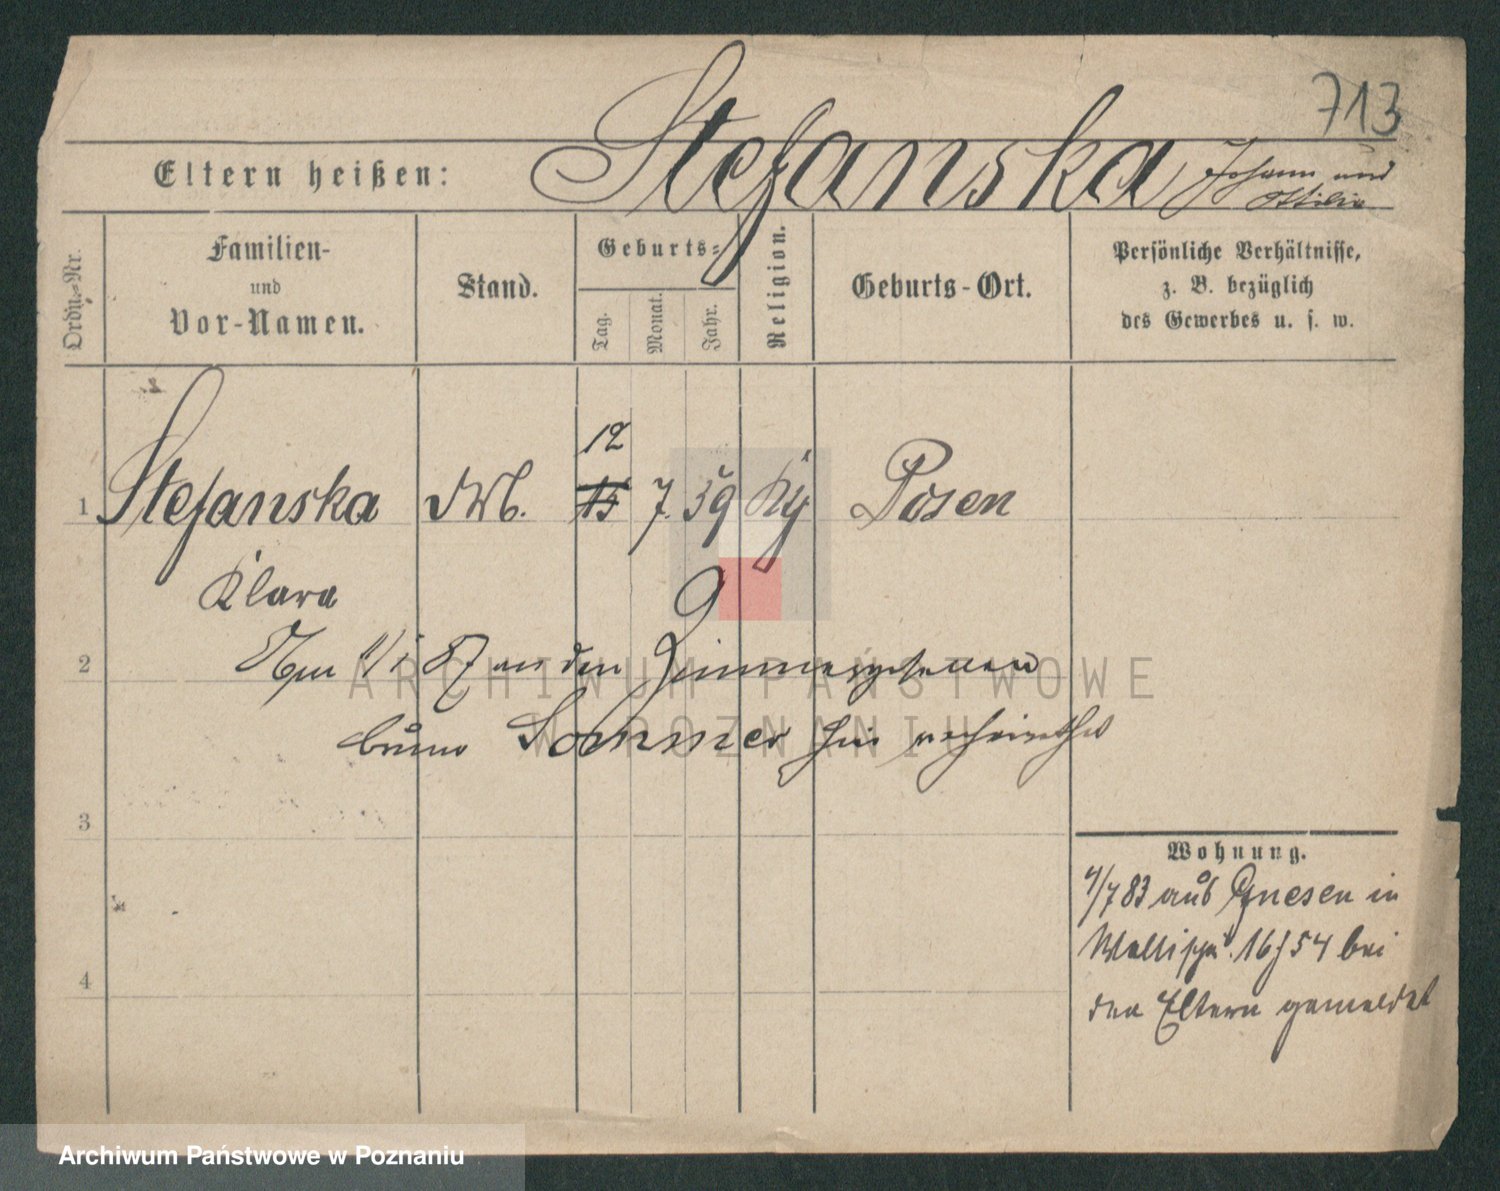 713
Stefanska Johann und
Eltern heißen: Ottilie
Ordn.-Nr. Familien- und Vor-Namen. Stand. Geburts= Tag. Monat. Jahr. Religion. Geburts-Ort. Persönliche Verhältnisse, z. B. bezüglich des Gewerbes u. s. w.
12
1 Stefanska 15 7. 59 Posen
Klara
2 87 an den Zimmergesellen
Bruno Sommer hier verheirathet
3
Wohnung.
/7 83 aus Gnesen in
16/54 bei
4 den Eltern gemeldet
ARCHIWUM PAŃSTWOWE
W POZNANIU
Archiwum Państwowe w Poznaniu